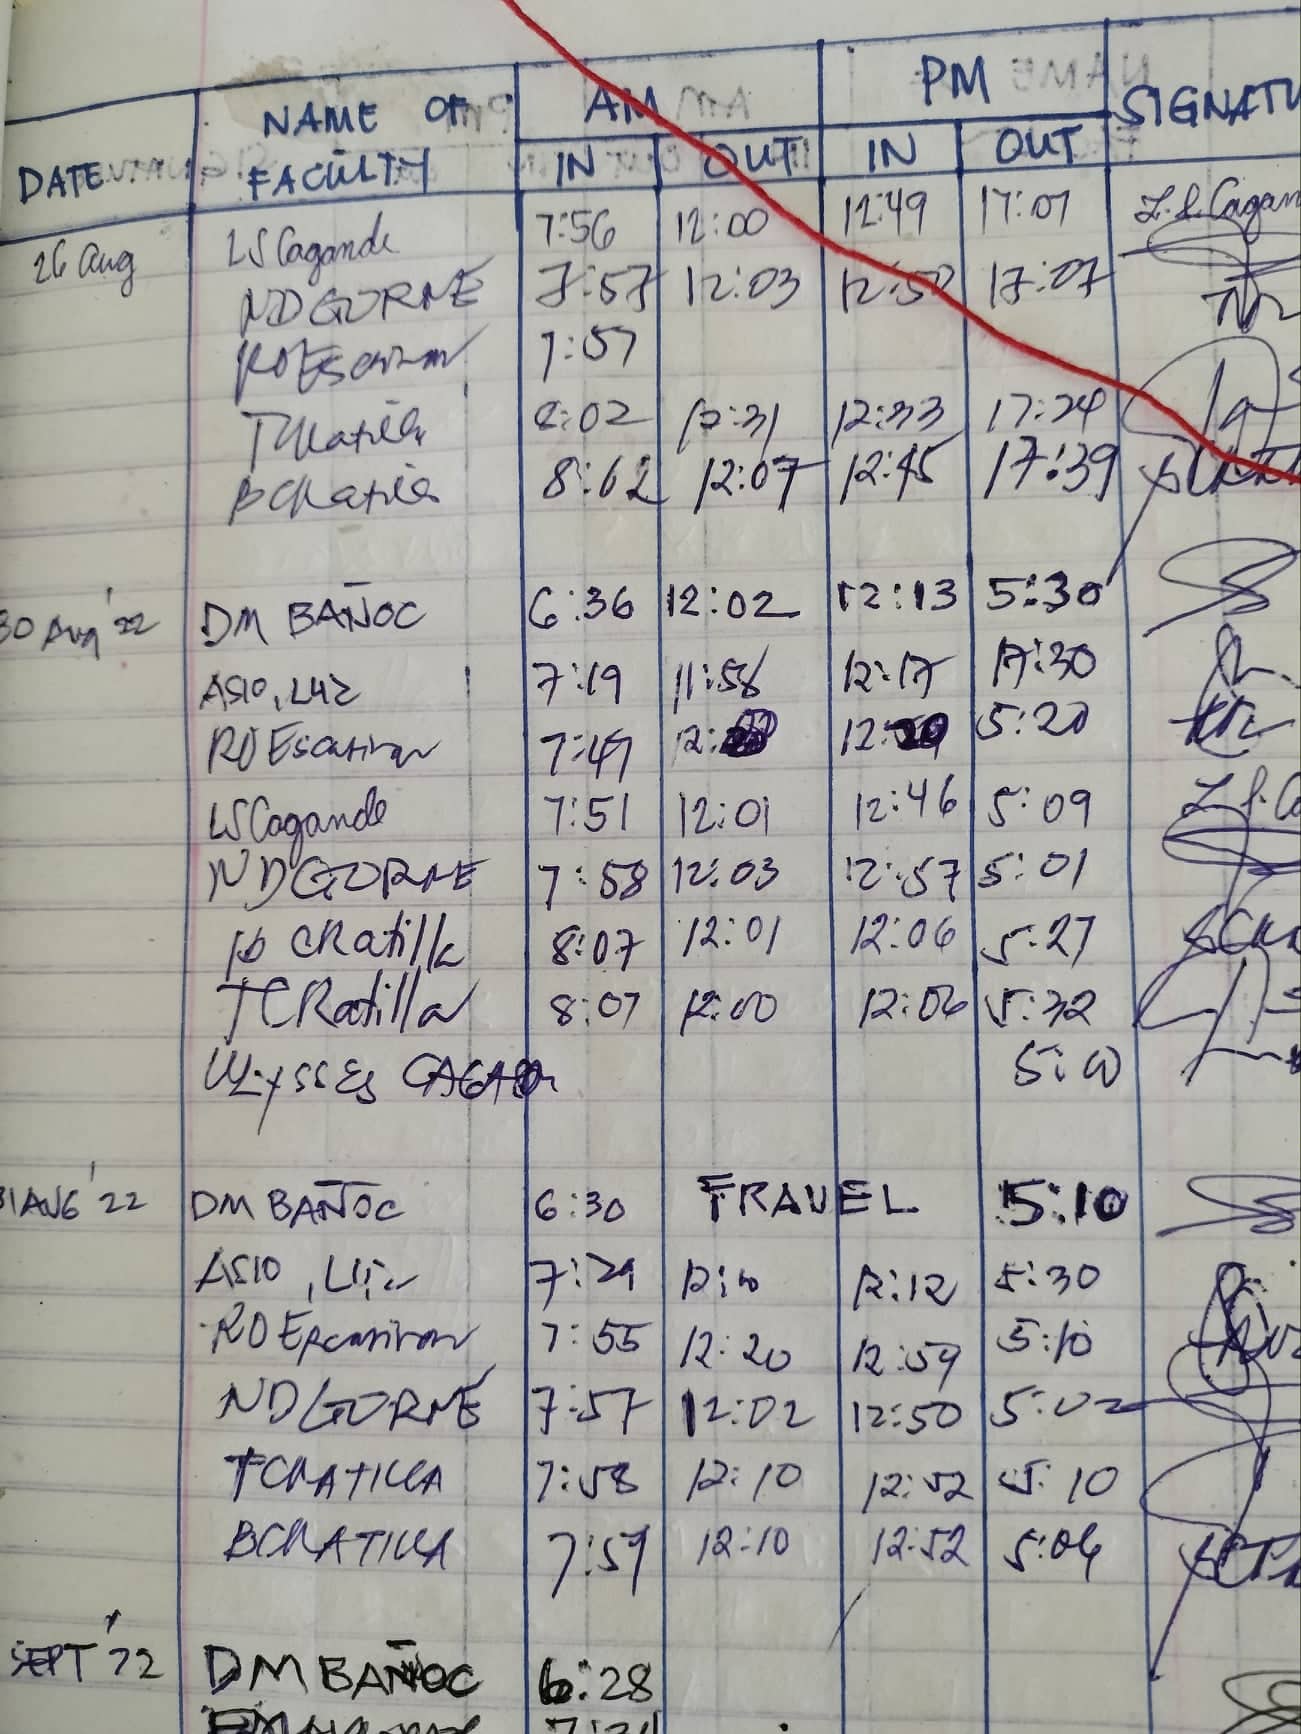 DATE NAME OF FACULTY AM PM SIGNATU
IN OUT IN OUT
26 Aug LSCagande 7:56 12:00 12:49 17:07 L.S.Cagan
NDGORNE 7:57 12:03 12:50 17:07
ROEscatron 7:57
TCRatilla 8:02 12:31 12:33 17:24
BCRatilla 8:02 12:07 12:45 17:39
30 Aug '22 DM BAÑOC 6:36 12:02 12:13 5:30
ASIO, LUZ 7:19 11:58 12:17 17:30
ROEscatron 7:47 12: 12: 5:20
LSCagande 7:51 12:01 12:46 5:09
NDGORNE 7:58 12:03 12:57 5:01
B CRatilla 8:07 12:01 12:06 5:27
TCRatilla 8:07 12:00 12:06 5:32
ULYSSES
31 AUG '22 DM BAÑOC 6:30 TRAVEL 5:10
ASIO, 7:29 12:12 5:30
RO 7:55 12:20 12:59 5:10
NDGORNE 7:57 12:02 12:50 5:02
TCRATILLA 7:58 12:10 12:52 5:10
BCRATILLA 7:59 12:10 12:52 5:06
SEPT '22 DM BAÑOC 6:28